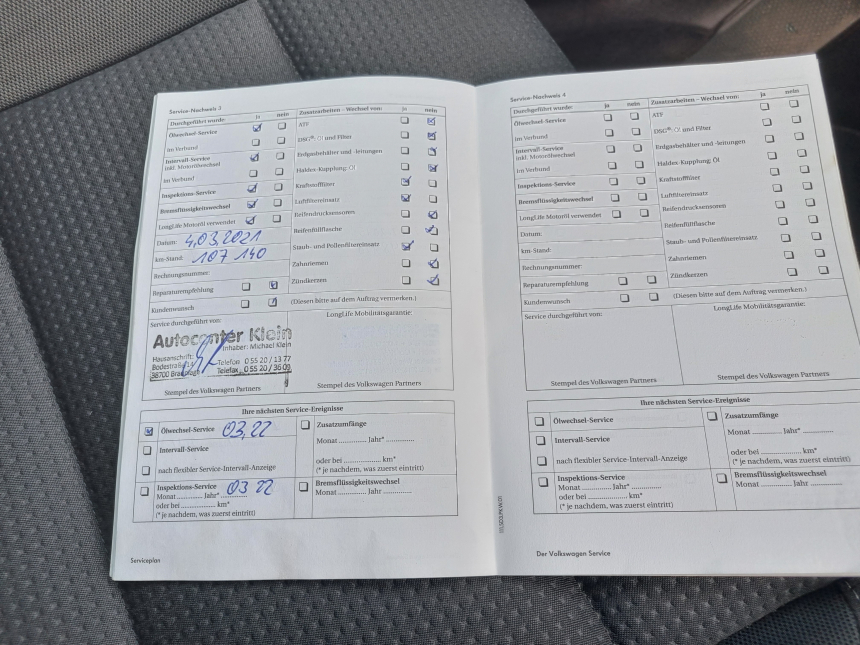 Service-Nachweis 3
Durchgeführt wurde: ja nein
Ölwechsel-Service
im Verbund
Intervall-Service
inkl. Motorölwechsel
im Verbund
Inspektions-Service
Bremsflüssigkeitswechsel
LongLife Motoröl verwendet
Datum: 4.03.2021
km-Stand: 107 140
Rechnungsnummer:
Reparaturempfehlung
Kundenwunsch
Zusatzarbeiten - Wechsel von: ja nein
ATF
DSG®: Öl und Filter
Erdgasbehälter und -leitungen
Haldex-Kupplung: Öl
Kraftstofffilter
Luftfiltereinsatz
Reifendrucksensoren
Reifenfüllflasche
Staub- und Pollenfiltereinsatz
Zahnriemen
Zündkerzen
(Diesen bitte auf dem Auftrag vermerken.)
Service durchgeführt von:
Autocenter Klein
Inhaber: Michael Klein
Hausanschrift:
Telefon 0 55 20 / 13 77
38700
Telefax 0 55 20 / 36 09
Stempel des Volkswagen Partners
LongLife Mobilitätsgarantie:
Stempel des Volkswagen Partners
Ihre nächsten Service-Ereignisse
Ölwechsel-Service 03.22
Intervall-Service
nach flexibler Service-Intervall-Anzeige
Inspektions-Service 03 22
Monat ............ Jahr* ............
oder bei ............ km*
(* je nachdem, was zuerst eintritt)
Zusatzumfänge
Monat ............ Jahr* ............
oder bei ............ km*
(* je nachdem, was zuerst eintritt)
Bremsflüssigkeitswechsel
Monat ............ Jahr ............
Serviceplan
Service-Nachweis 4
Durchgeführt wurde: ja nein
Ölwechsel-Service
im Verbund
Intervall-Service
inkl. Motorölwechsel
im Verbund
Inspektions-Service
Bremsflüssigkeitswechsel
LongLife Motoröl verwendet
Datum:
km-Stand:
Rechnungsnummer:
Reparaturempfehlung
Kundenwunsch
Zusatzarbeiten - Wechsel von: ja nein
ATF
DSG®: Öl und Filter
Erdgasbehälter und -leitungen
Haldex-Kupplung: Öl
Kraftstofffilter
Luftfiltereinsatz
Reifendrucksensoren
Reifenfüllflasche
Staub- und Pollenfiltereinsatz
Zahnriemen
Zündkerzen
(Diesen bitte auf dem Auftrag vermerken.)
Service durchgeführt von:
Stempel des Volkswagen Partners
LongLife Mobilitätsgarantie:
Stempel des Volkswagen Partners
Ihre nächsten Service-Ereignisse
Ölwechsel-Service
Intervall-Service
nach flexibler Service-Intervall-Anzeige
Inspektions-Service
Monat ............ Jahr* ............
oder bei ............ km*
(* je nachdem, was zuerst eintritt)
Zusatzumfänge
Monat ............ Jahr* ............
oder bei ............ km*
(* je nachdem, was zuerst eintritt)
Bremsflüssigkeitswechsel
Monat ............ Jahr ............
Der Volkswagen Service